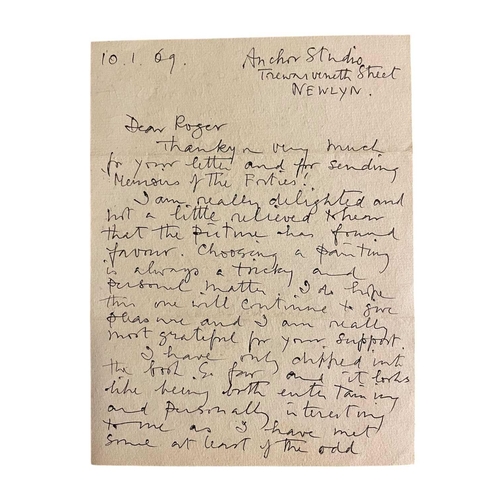 10.1.69.
Anchor Studio,
Trewarveneth Street
NEWLYN.
Dear Roger
Thankyou very much
for your letter and for sending
'Memoirs of the Forties'.
I am really delighted and
not a little relieved to hear
that the picture has found
favour. Choosing a painting
is always a tricky and
personal matter. I do hope
this one will continue to give
pleasure and I am really
most grateful for your support.
I have only dipped into
the book so far and it looks
like being both entertaining
and personally interesting
to me as I have met
some at least of the odd